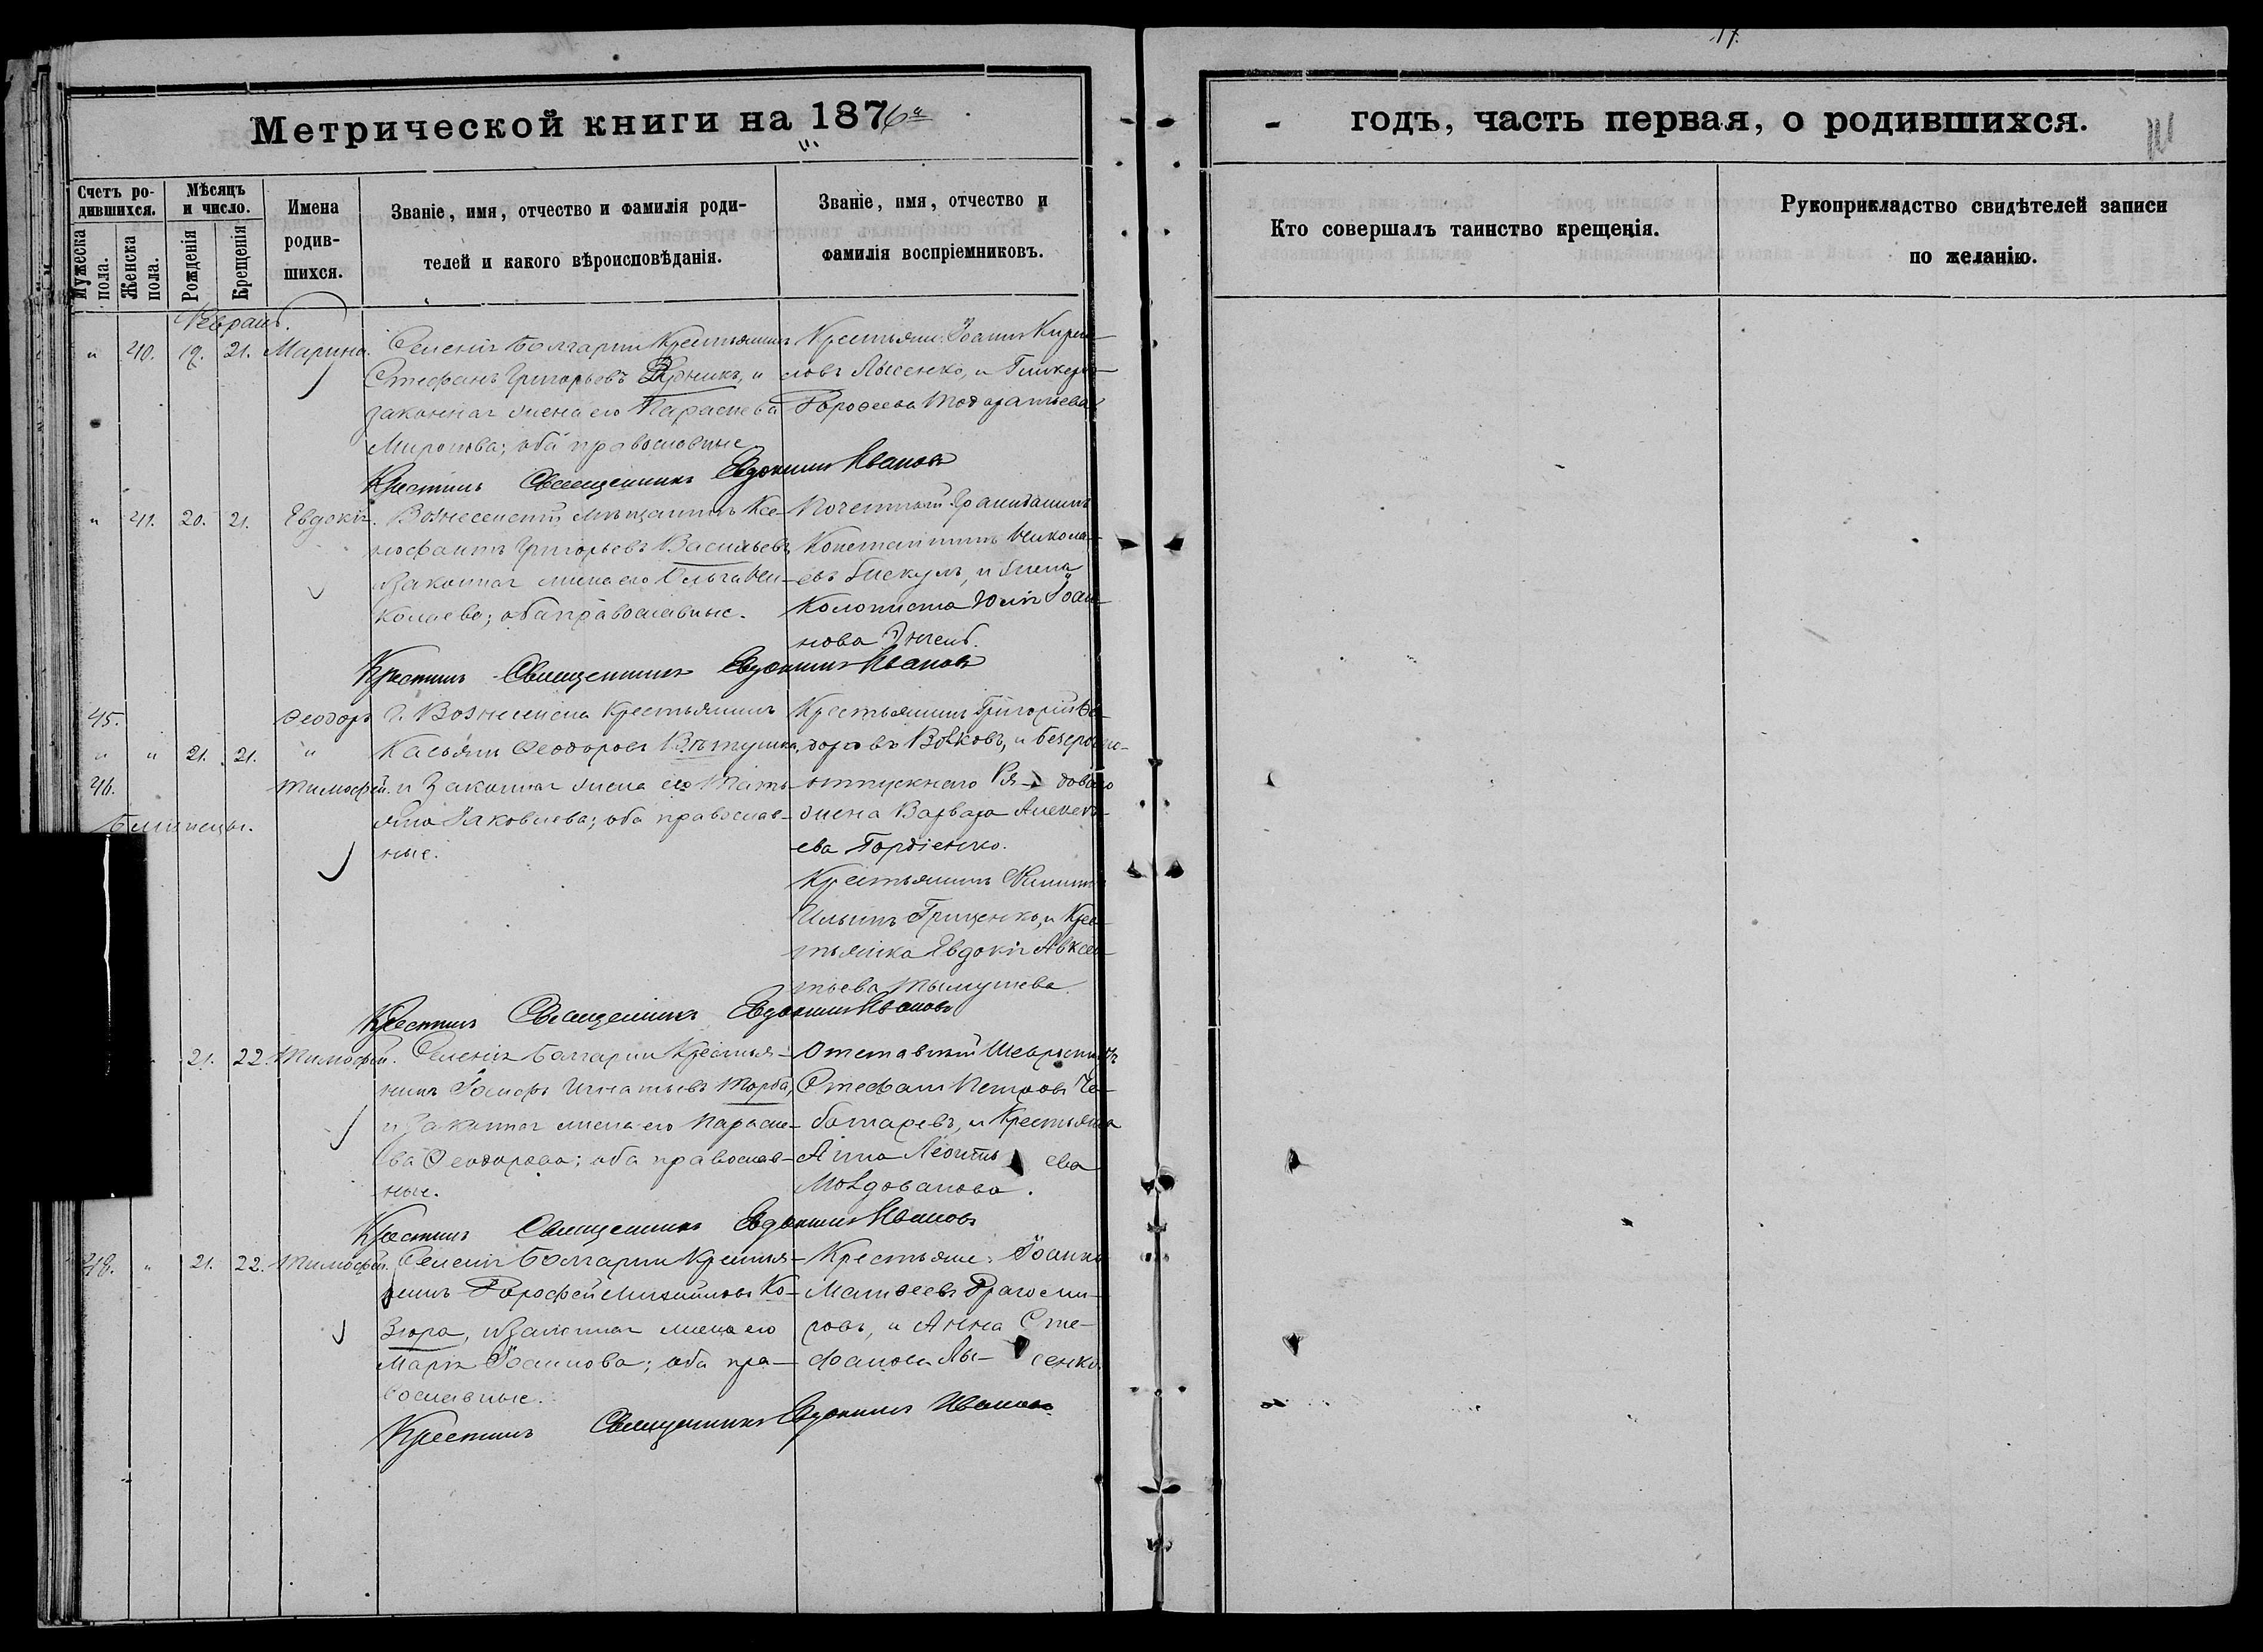 17.
Метрической книги на 1876й
годъ, часть первая, о родившихся.
Счетъ ро-
дившихся.
Мужеска пола.
Женска пола.
Мѣсяцъ
и число.
Рожденія
Крещенія
Имена
родив-
шихся.
Званіе, имя, отчество и фамилія роди-
телей и какого вѣроисповѣданія.
Званіе, имя, отчество и
фамилія воспріемниковъ.
Кто совершалъ таинство крещенія.
Рукоприкладство свидѣтелей записи
по желанію.
Февраль.
" 40. 19. 21. Марина.
Селенія Болгарки Крестьянинъ
Стефанъ Григорьевъ и
законная жена его Параскева
Миронова; оба православные
Крестьяне: Іоаннъ Кирил-
ловъ Лысенко, и
Дорофеева
Крестилъ Священникъ Евдокимъ Ивановъ
" 41. 20. 21. Евдокія.
Вознесенскій мѣщанинъ Ксе-
нофонтъ Григорьевъ Васильевъ,
и законная жена его Ольга Ни-
колаева; оба православные.
Почетный Гражданинъ
Константинъ Никола-
евъ и жена
Колониста Юлія Іоан-
нова
Крестилъ Священникъ Евдокимъ Ивановъ
45. Ѳеодоръ
" " 21. 21. "
46. Тимофей.
Близнецы.
г. Вознесенска Крестьянинъ
Касьянъ Ѳеодоровъ
и законная жена его Тать-
яна Яковлева; оба православ-
ные.
Крестьянинъ Григорій Ѳе-
доровъ Волковъ, и безсрочно-
отпускнаго Рядоваго
жена Варвара Алексѣ-
ева Гордіенко.
Крестьянинъ Филиппъ
Ильинъ Гриценко, и Крес-
тьянка Евдокія Авксен-
тьева
Крестилъ Священникъ Евдокимъ Ивановъ
21. 22. Тимофей.
Селенія Болгарки Крестья-
нинъ Іосифъ Игнатьевъ Торба,
и законная жена его Параске-
ва Ѳеодорова; оба православ-
ные.
Отставной
Стефанъ Петровъ Че-
ботаревъ, и Крестьянка
Анна Леонтьева
Молдованова.
Крестилъ Священникъ Евдокимъ Ивановъ
48. " 21. 22. Тимофей.
Селенія Болгарки Крестья-
нинъ Дорофей Ко-
зюра, и законная жена его
Марія Іоаннова; оба пра-
вославные.
Крестьяне: Іоаннъ
Матвеевъ Драгоми-
ровъ, и Анна Сте-
фанова Лысенко.
Крестилъ Священникъ Евдокимъ Ивановъ